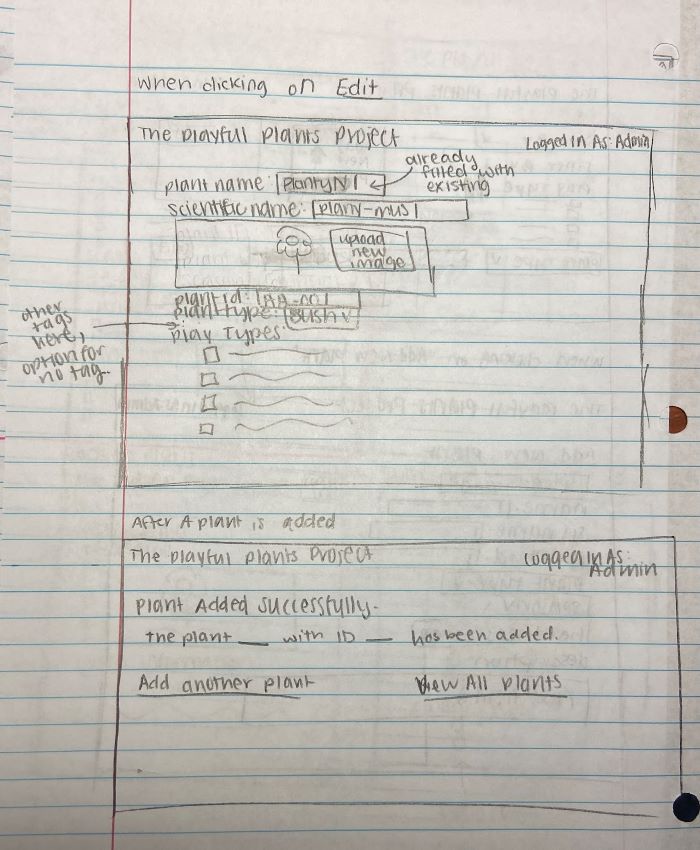 When clicking on Edit
The Playful Plants Project
Logged In As: Admin
already
filled with
existing
plant name: PlantyN
scientific name: plany-mus
upload
new
image
plant id: AA-01
plant type: Bush v
play Types:
other
tags
here,
option for
no tag.
After A plant is added
The Playful Plants Project
Logged In As:
Admin
Plant Added Successfully.
The plant ___ with ID ___ has been added.
Add another plant
View All plants